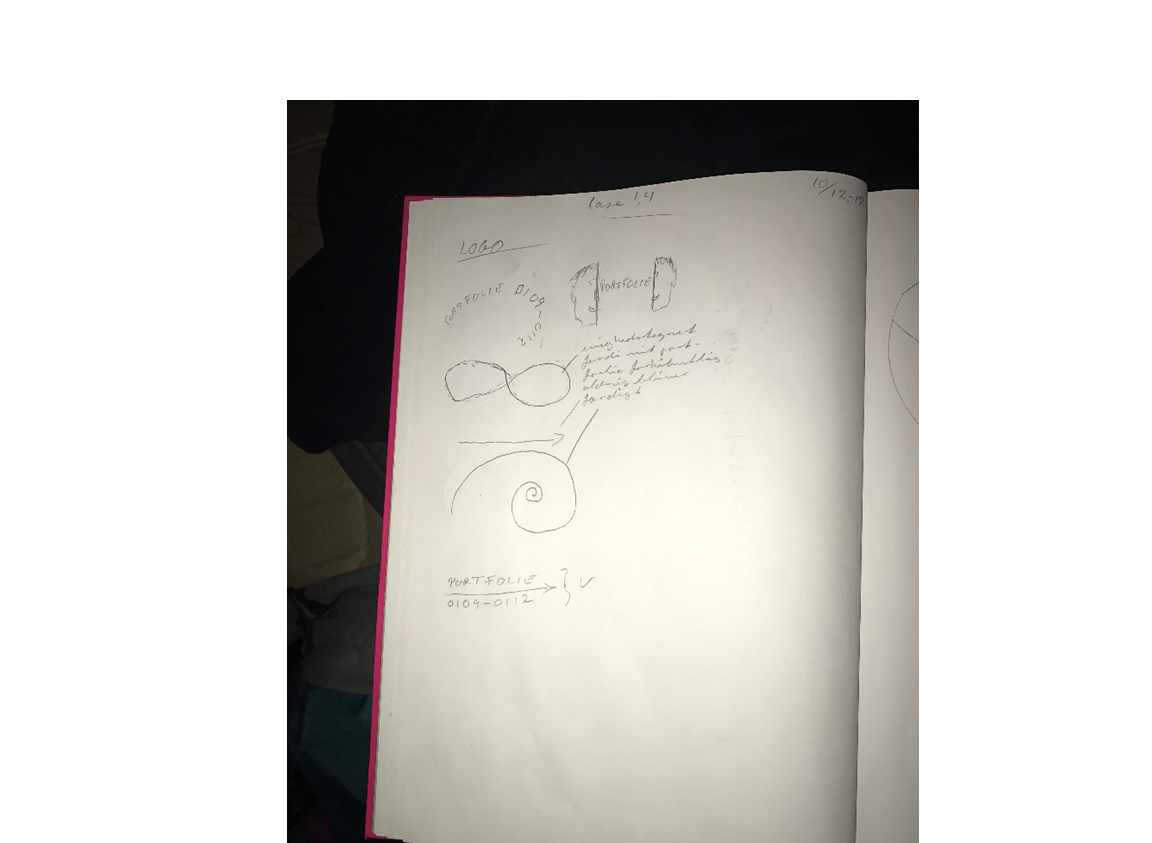 Case 1,4
10/12-12
LOGO
PORTFOLIE 0109-0112
PORTFOLIE
evighedstegnet
fordi mit port-
folie forhåbentlig
aldrig bliver
færdigt
PORTFOLIE
0109-0112